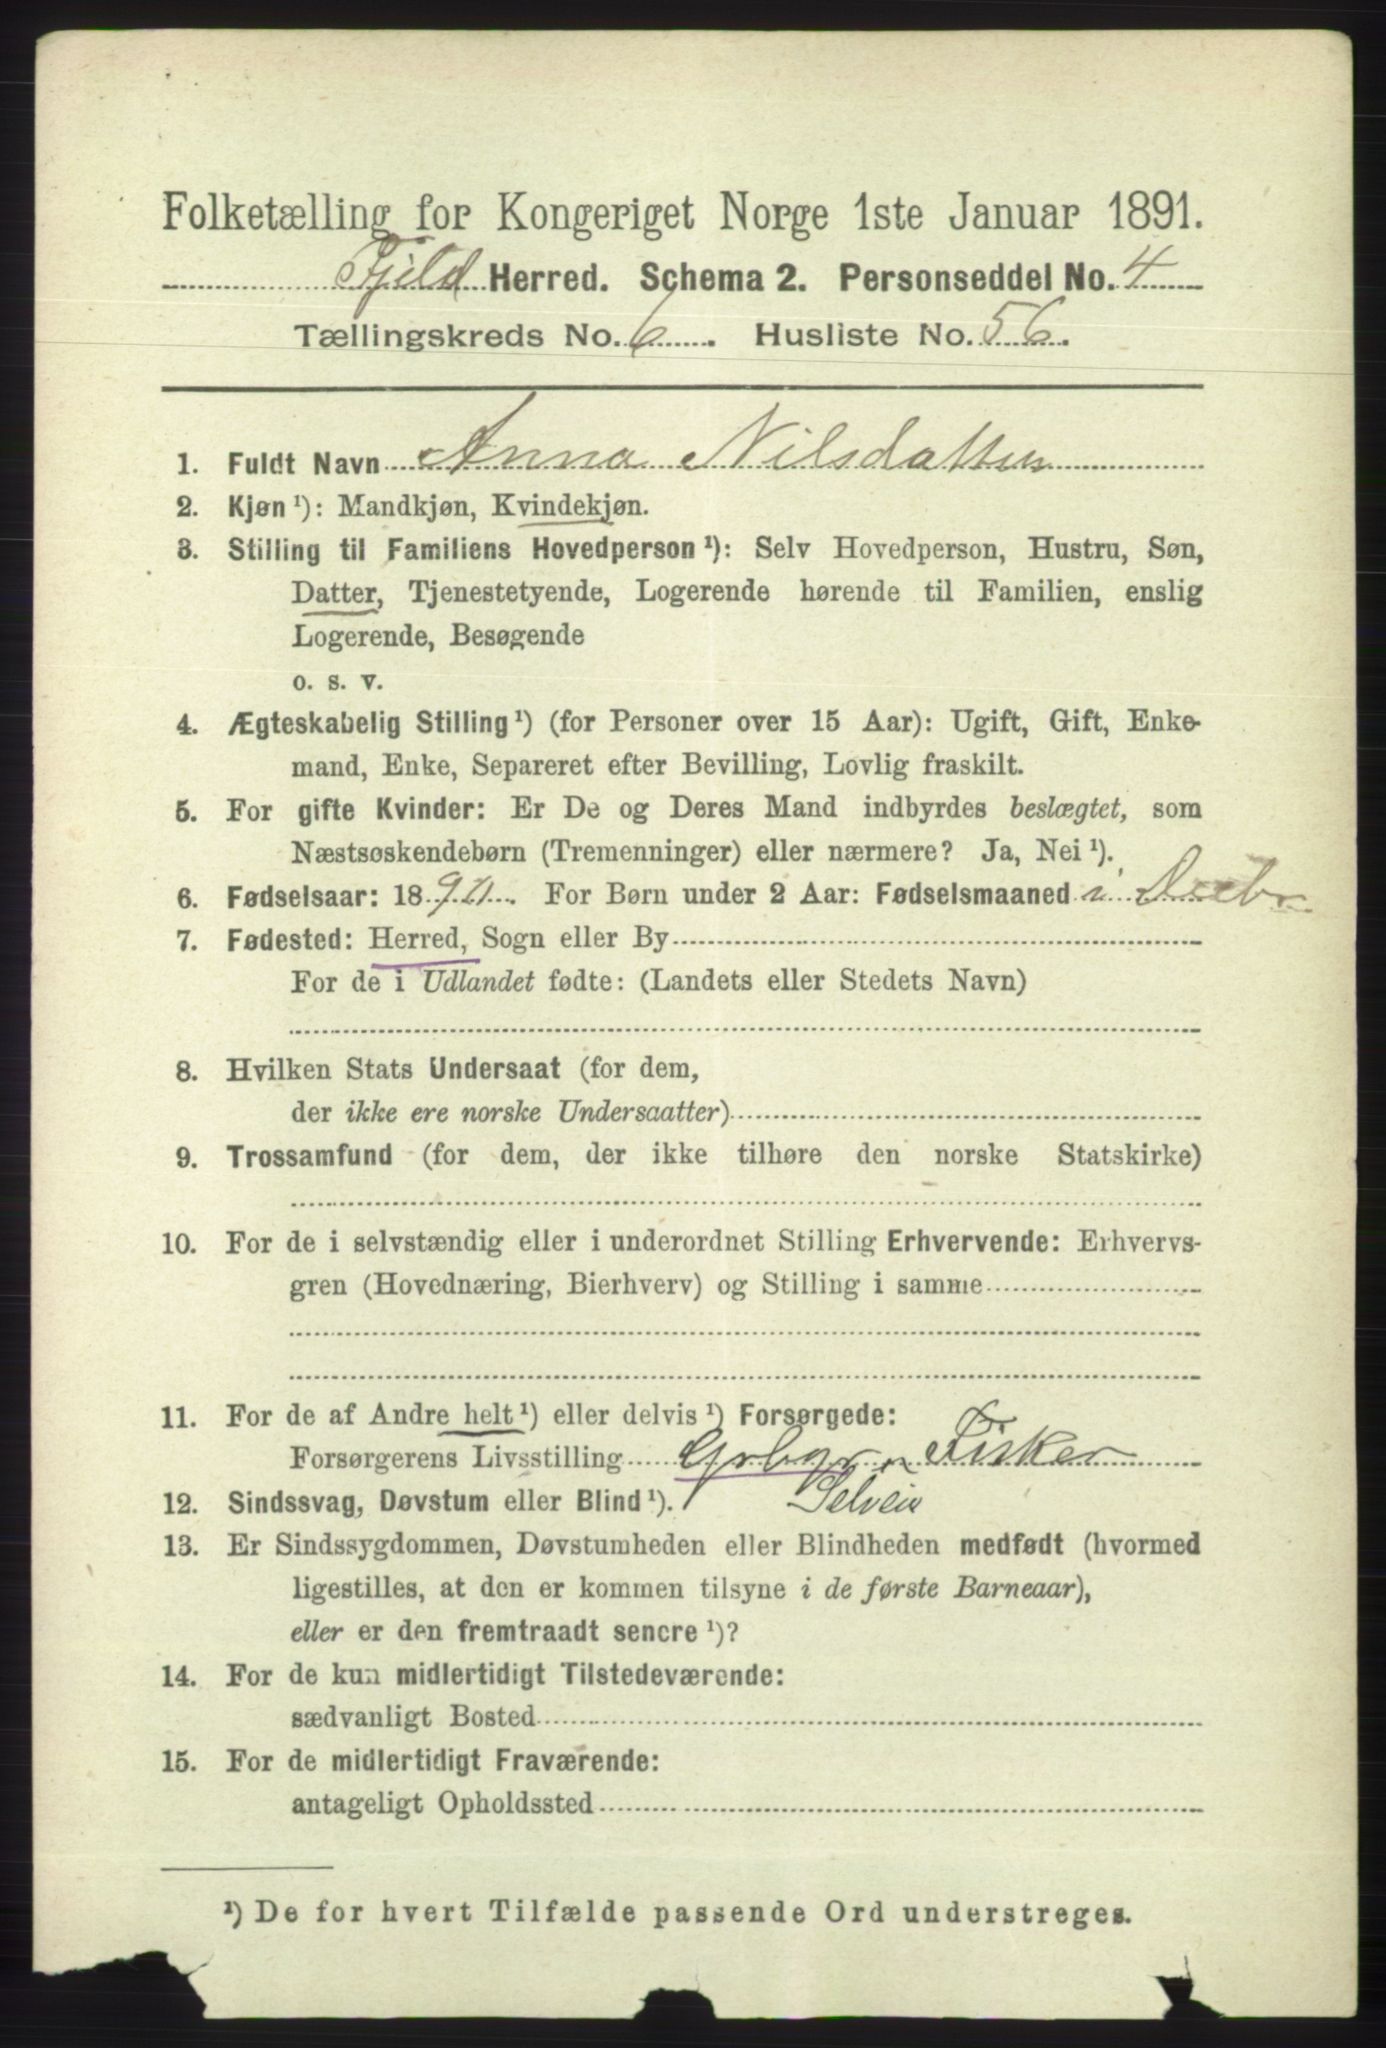 Folketælling for Kongeriget Norge 1ste Januar 1891.
Fjeld Herred. Schema 2. Personseddel No. 4
Tællingskreds No. 6. Husliste No. 56.
1. Fuldt Navn Anna Nilsdatter
2. Kjøn ¹): Mandkjøn, Kvindekjøn.
3. Stilling til Familiens Hovedperson ¹): Selv Hovedperson, Hustru, Søn,
Datter, Tjenestetyende, Logerende hørende til Familien, enslig
Logerende, Besøgende
o. s. v.
4. Ægteskabelig Stilling ¹) (for Personer over 15 Aar): Ugift, Gift, Enke-
mand, Enke, Separeret efter Bevilling, Lovlig fraskilt.
5. For gifte Kvinder: Er De og Deres Mand indbyrdes beslægtet, som
Næstsøskendebørn (Tremenninger) eller nærmere? Ja, Nei ¹).
6. Fødselsaar: 18 90. For Børn under 2 Aar: Fødselsmaaned i Decbr
7. Fødested: Herred, Sogn eller By
For de i Udlandet fødte: (Landets eller Stedets Navn)
8. Hvilken Stats Undersaat (for dem,
der ikke ere norske Undersaatter)
9. Trossamfund (for dem, der ikke tilhøre den norske Statskirke)
10. For de i selvstændig eller i underordnet Stilling Erhvervende: Erhvervs-
gren (Hovednæring, Bierhverv) og Stilling i samme
11. For de af Andre helt ¹) eller delvis ¹) Forsørgede:
Forsørgerens Livsstilling Grbgr Fisker
12. Sindssvag, Døvstum eller Blind ¹). Selveier
13. Er Sindssygdommen, Døvstumheden eller Blindheden medfødt (hvormed
ligestilles, at den er kommen tilsyne i de første Barneaar),
eller er den fremtraadt senere ¹)?
14. For de kun midlertidigt Tilstedeværende:
sædvanligt Bosted
15. For de midlertidigt Fraværende:
antageligt Opholdssted
¹) De for hvert Tilfælde passende Ord understreges.